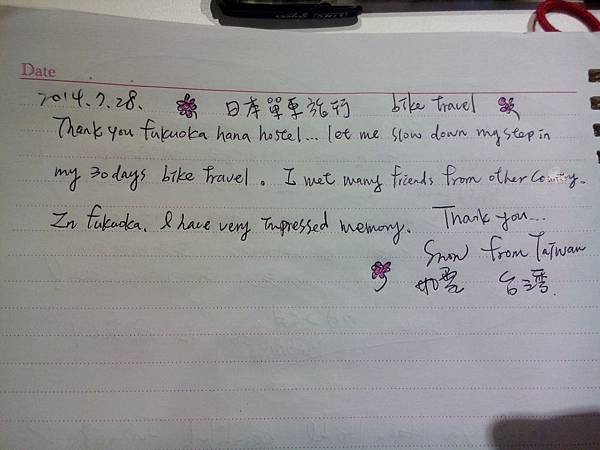 Date
2014.7.28. 日本單車旅行 bike travel
Thank you fukuoka hana hostel... let me slow down my step in
my 30 days bike travel. I met many friends from other country.
In fukuoka. I have very impressed memory. Thank you...
Snow from Taiwan
如雪 台灣.